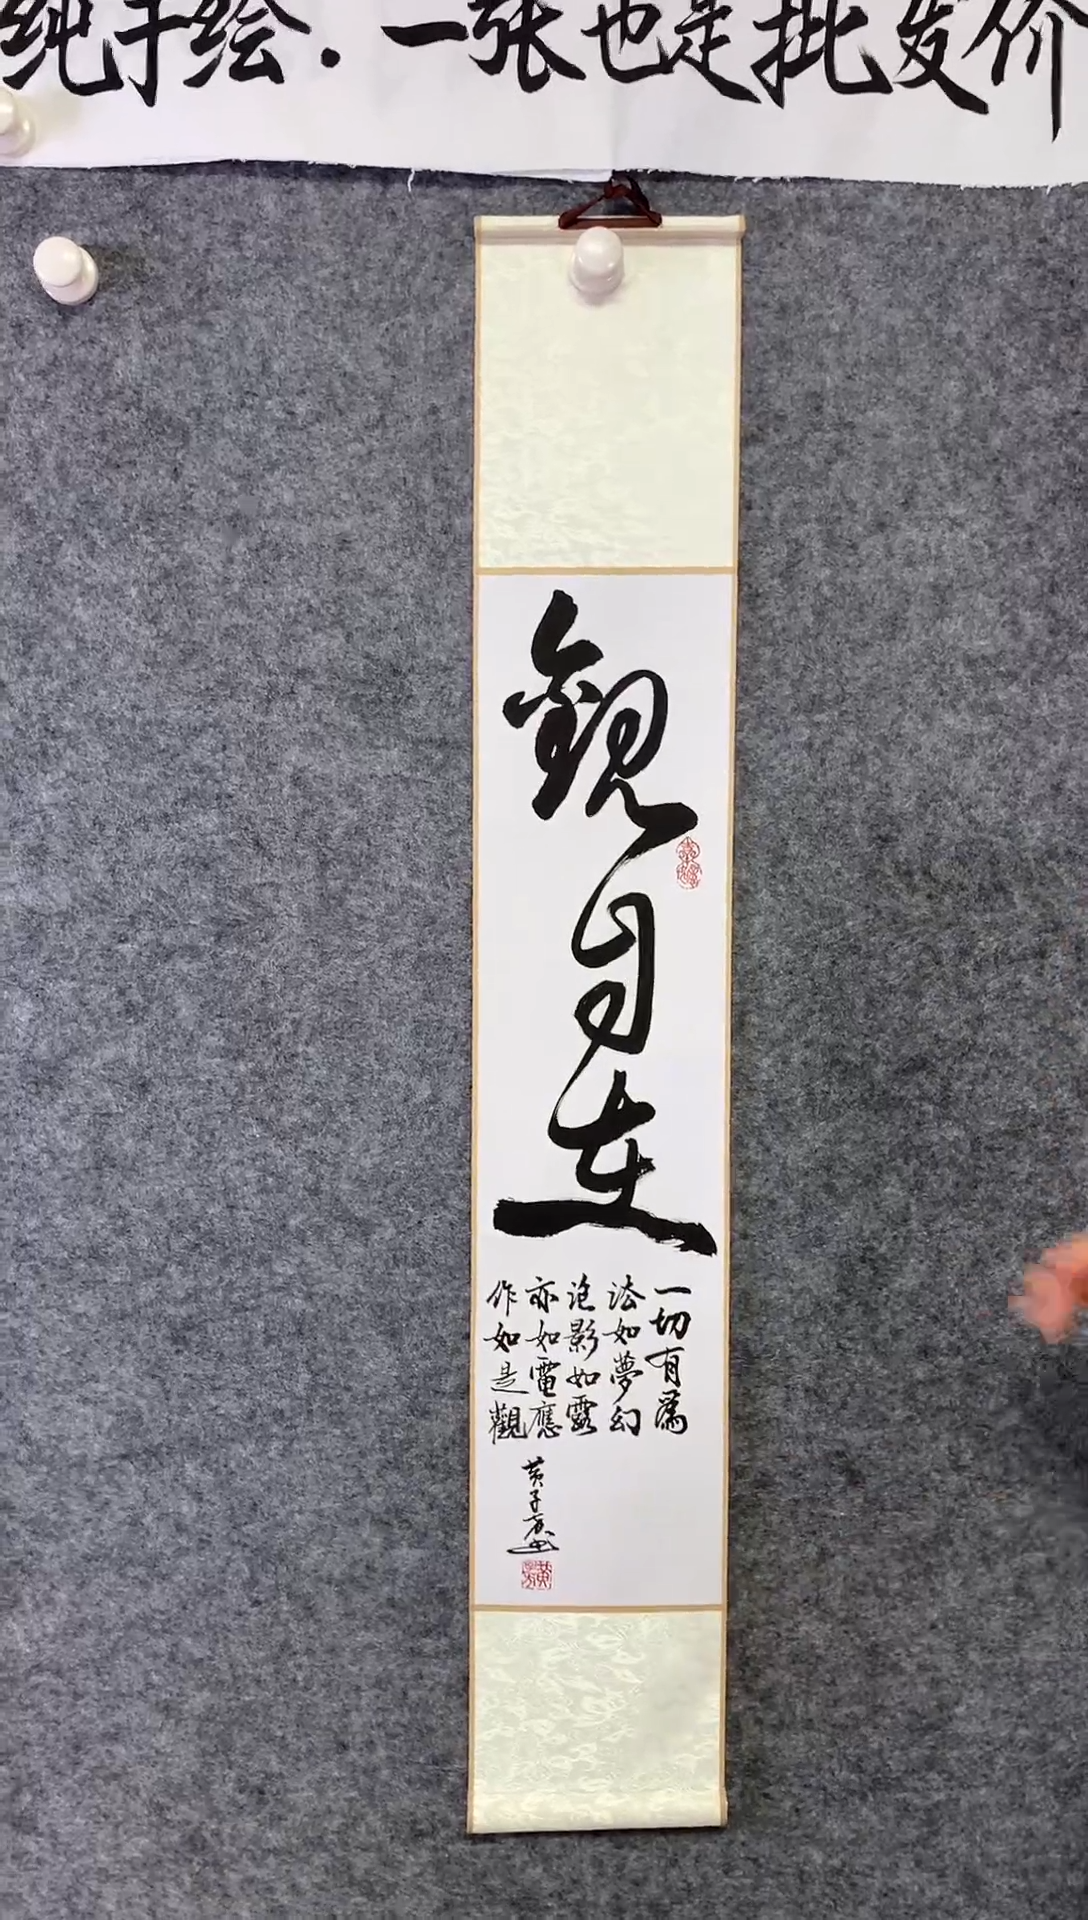 纯手绘.一张也是批发价
觀自在
一切有為
法如夢幻
泡影如露
亦如電應
作如是觀
黄子